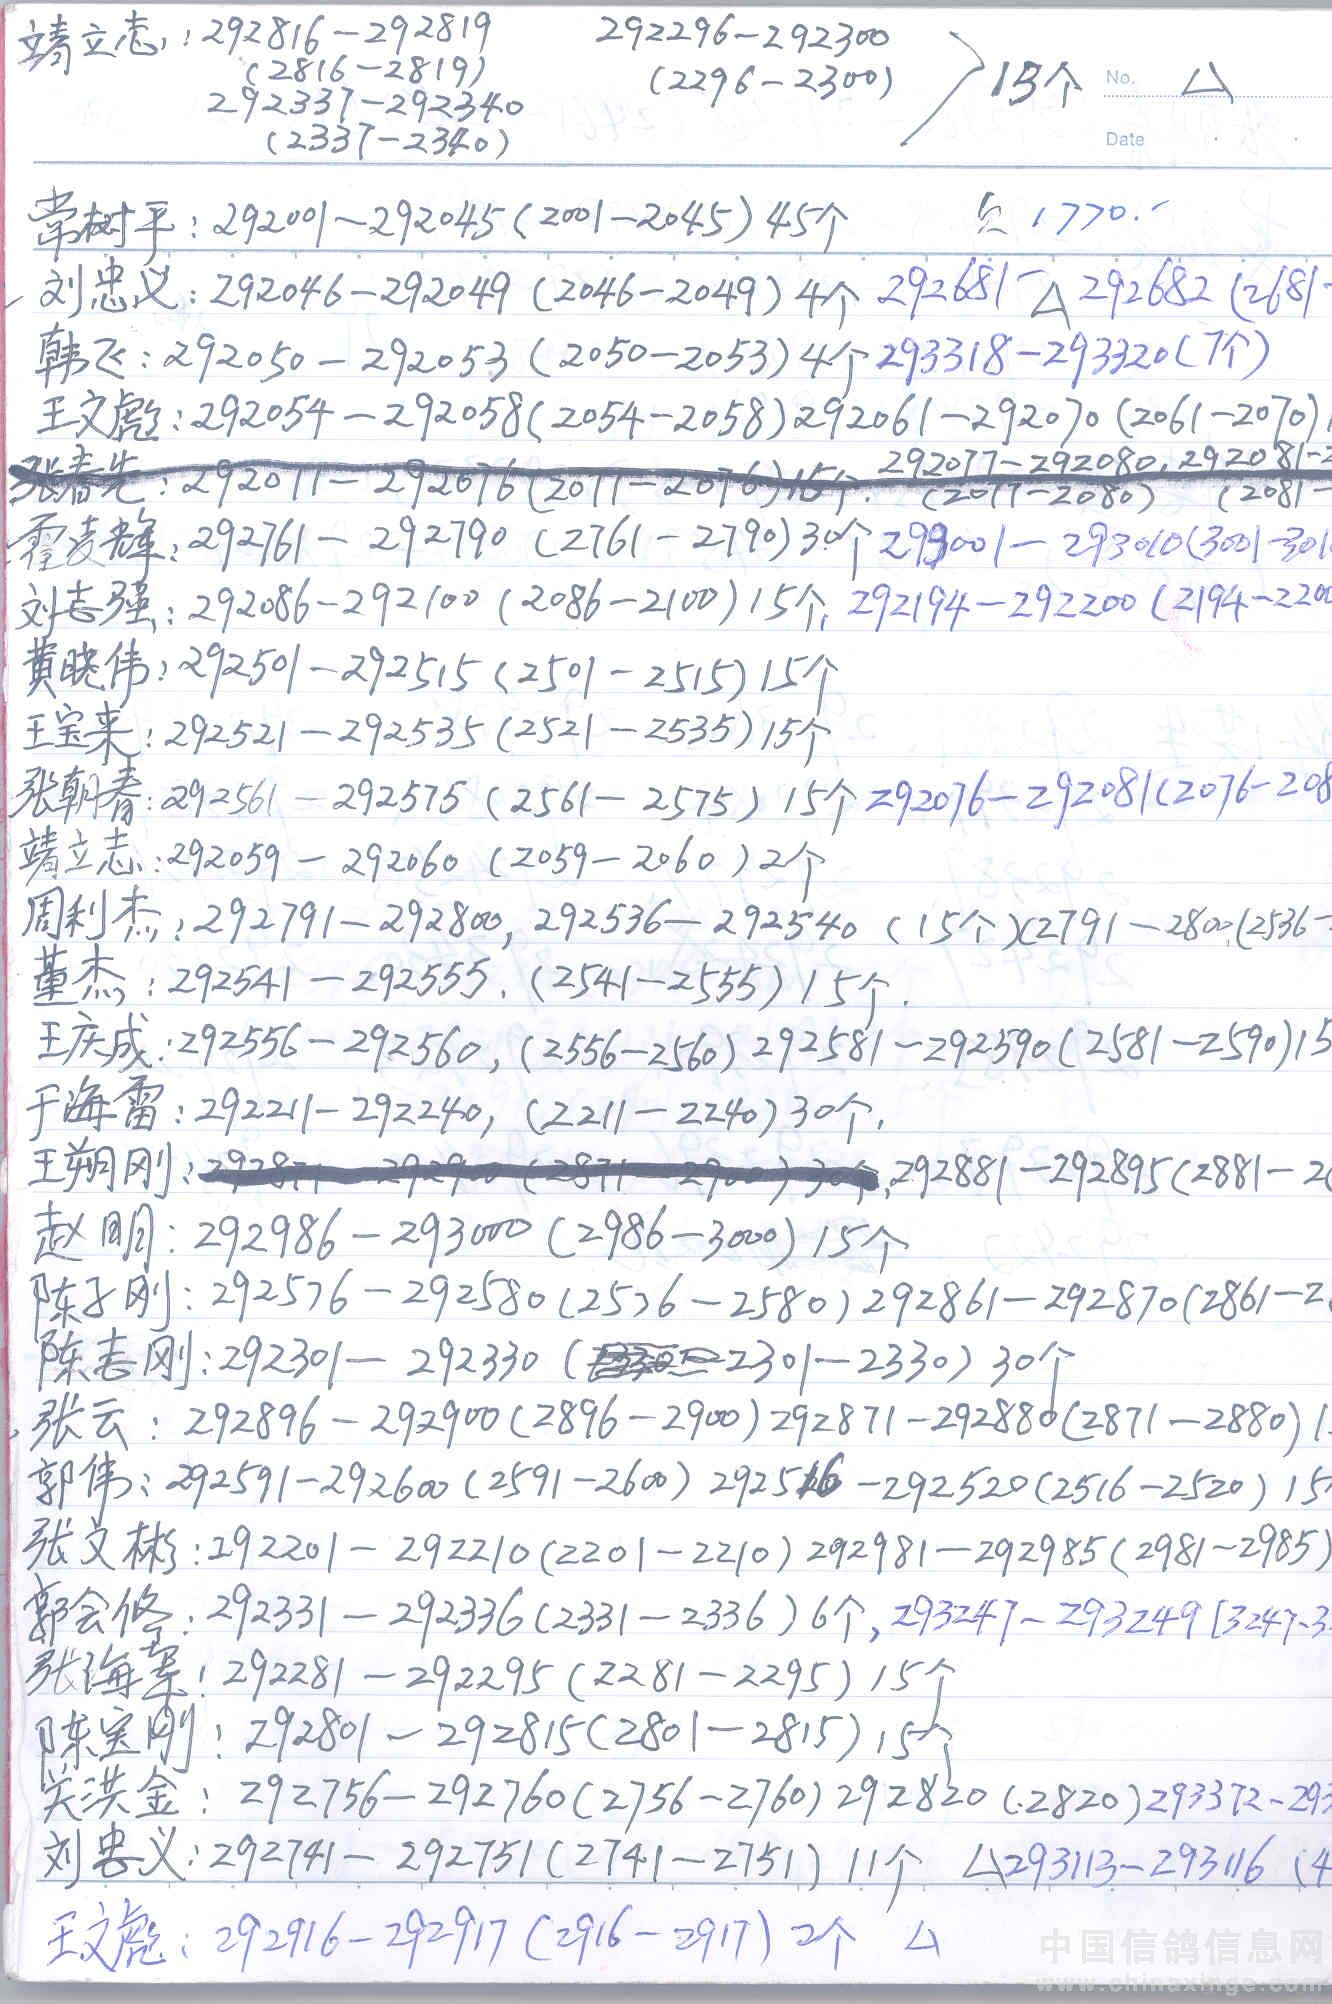 靖立志: 292816-292819 292296-292300
(2816-2819) (2296-2300) 13个 No. △
292337-292340
(2337-2340) Date
常树平: 292001~292045(2001-2045) 45个 1770.-
刘忠义: 292046-292049 (2046-2049) 4个 292681- △ 292682 (2681-
韩飞: 292050-292053 (2050-2053) 4个 293318-293320(7个)
王文彪: 292054-292058(2054-2058) 292061-292070 (2061-2070)
292077-292080, 292081-2
张春先: 292071-292076(2071-2076)15个. (2077-2080) (2081-
霍凌辉: 292761-292790 (2761-2790)30个 293001-293010(3001-301
刘志强: 292086-292100 (2086-2100) 15个, 292194-292200 (2194-2200
黄晓伟: 292501-292515 (2501-2515) 15个
王宝来: 292521-292535 (2521-2535) 15个
张朝春: 292561-292575 (2561-2575) 15个 292076-292081(2076-208
靖立志: 292059-292060 (2059-2060) 2个
周利杰: 292791-292800, 292536-292540 (15个)(2791-2800.(2536-
董杰: 292541-292555. (2541-2555) 15个.
王庆成: 292556-292560, (2556-2560) 292581-292590(2581-2590)15
于海雷: 292211-292240, (2211-2240) 30个.
王朔刚: 292871-292900 (2871-2900) 30个, 292881-292895(2881-2
赵明: 292986-293000 (2986-3000) 15个
陈子刚: 292576-292580(2576-2580) 292861-292870(2861-2
陈志刚: 292301-292330 (2301-2330) 30个
张云: 292896-292900(2896-2900) 292871-292880(2871-2880) 1
郭伟: 292591-292600(2591-2600) 292516-292520(2516-2520) 15
张文彬: 292201-292210(2201-2210) 292981-292985(2981-2985)
郭会修: 292331-292336(2331-2336) 6个, 293247-293249 [3247-3
张海军: 292281-292295 (2281-2295) 15个
陈宝刚: 292801-292815(2801-2815) 15个
关洪金: 292756-292760(2756-2760) 292820 (2820) 293372-293
刘忠义: 292741-292751(2741-2751) 11个 △293113-293116 (4
王文彪: 292916-292917(2916-2917) 2个 △
中国信鸽信息网
www.chinaxinge.com